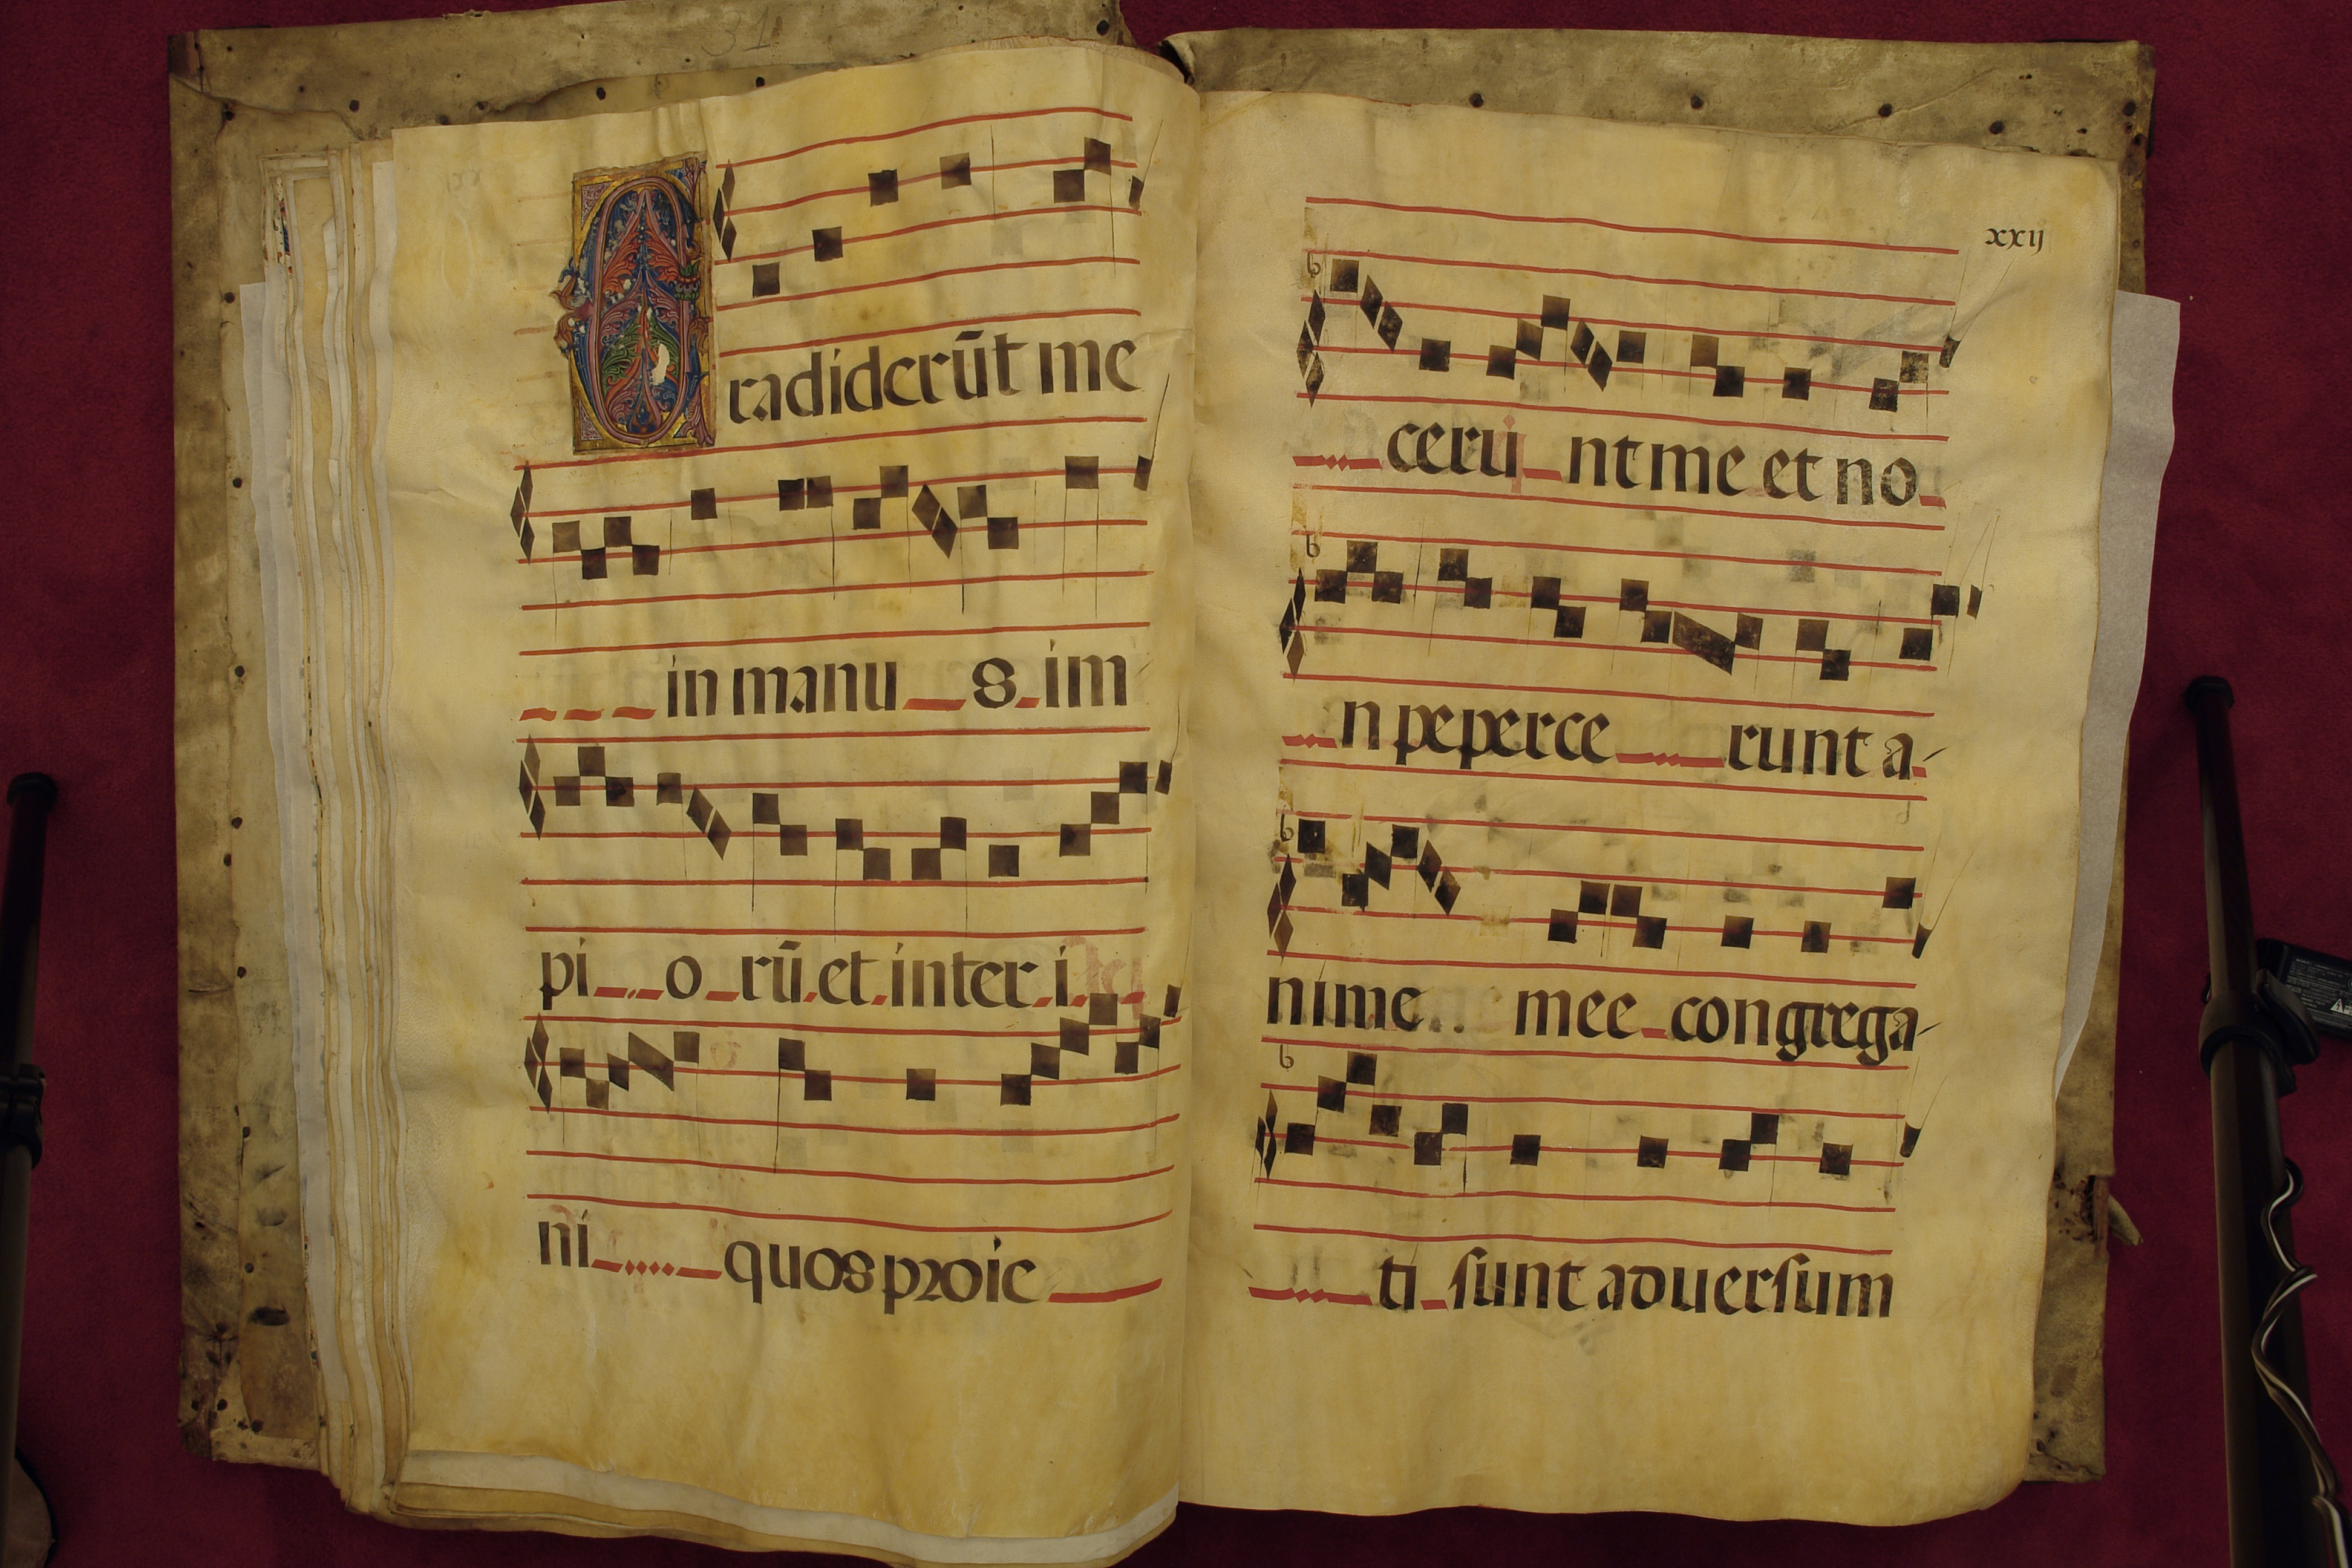 31
Tradiderūt me
in manus im
piorū et inter i
ni quos proie
xxij
cerunt me et no
n peperce runt a
nime mee congrega
ti sunt aduersum